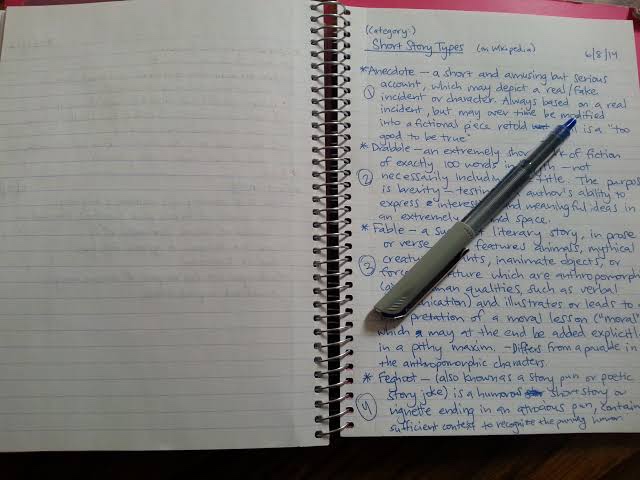 (Category:)
Short Story Types (on Wikipedia)
6/8/14
*Anecdote – a short and amusing but serious
account, which may depict a real/fake
① incident or character. Always based on a real
incident, but may over time be modified
into a fictional piece retold is a "too
good to be true"
*Drabble – an extremely short of fiction
of exactly 100 words in – not
② necessarily including title. The purpose
is brevity – testing author's ability to
express interesting and meaningful ideas in
an extremely space.
*Fable – a literary story, in prose
or verse features animals, mythical
creatures, inanimate objects, or
③ which are anthropomorph
human qualities, such as verbal
and illustrates or leads to
of a moral lesson ("moral"
which may at the end be added explicitl
in a pithy maxim. – Differs from a parable in
the anthropomorphic characters.
* Feghoot – (also known as a story pun or poetic
story joke) is a humorous short story or
④ vignette ending in an atrocious pun, contain
sufficient context to recognize the punning humor.